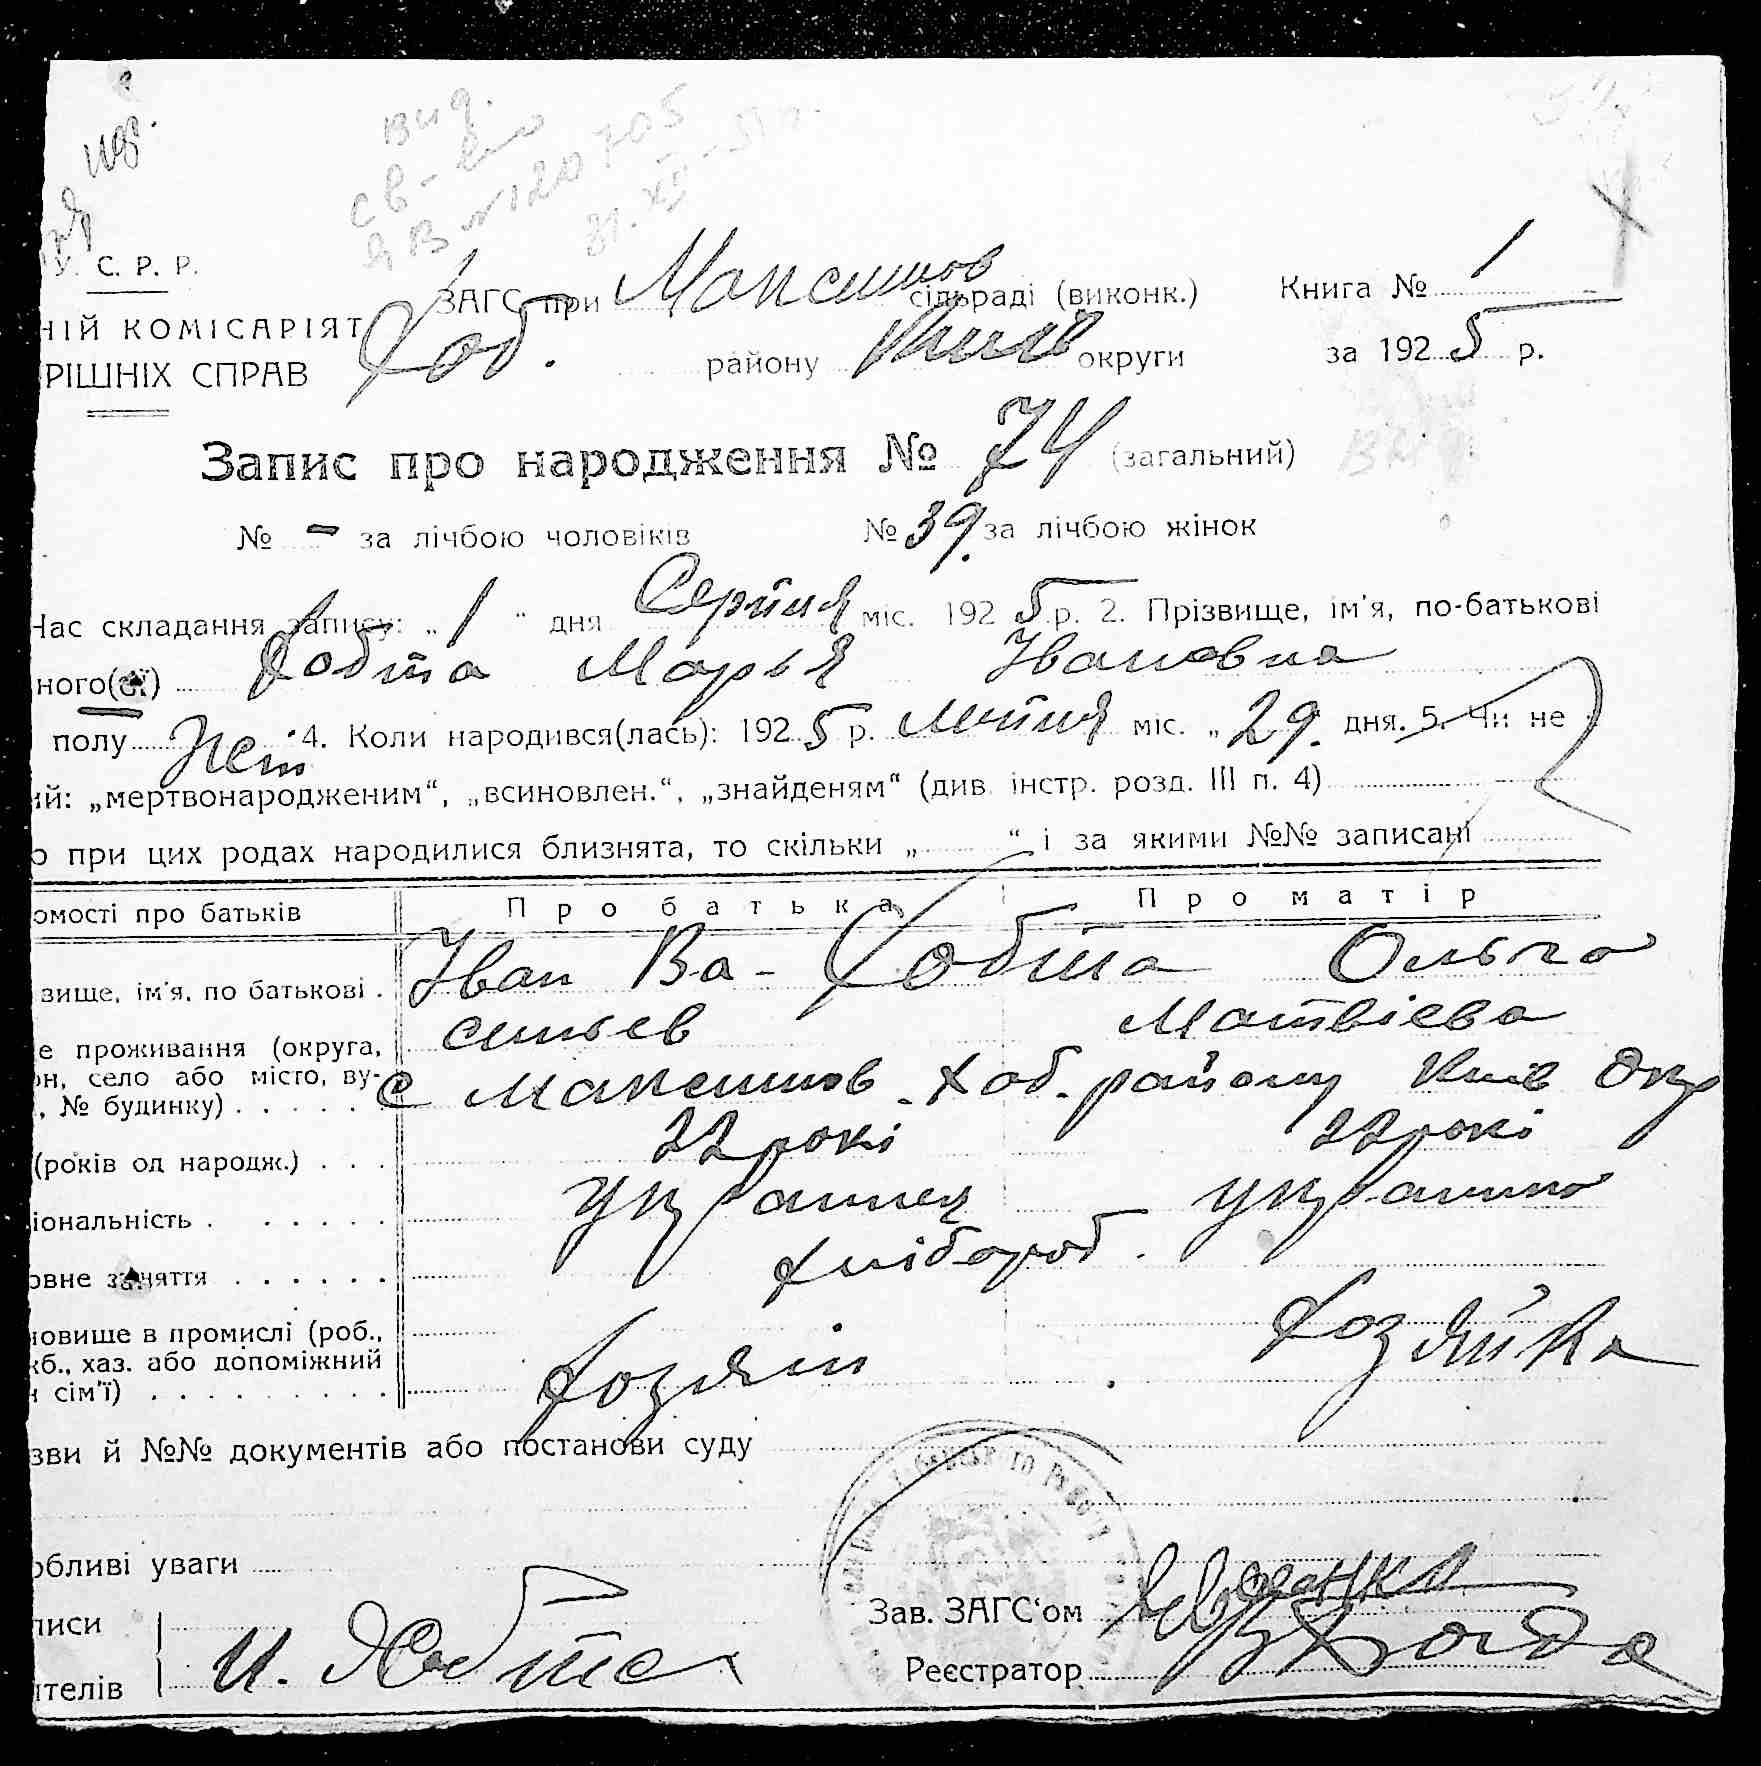 вид.
св-во
ЯВ №120705
31.XII-51 г.
У. С. Р. Р.
НІЙ КОМІСАРІЯТ
РІШНІХ СПРАВ
ЗАГС при Максимов сільраді (виконк.)
Хоб. району Київ округи
Книга № 1
за 1925 р.
Запис про народження № 74 (загальний)
№ – за лічбою чоловіків № 39. за лічбою жінок
Час складання запису: „1“ дня Серпня міс. 1925 р. 2. Прізвище, ім'я, по-батькові
ного(ої) Хобта Марья Івановна
полу жен 4. Коли народився(лась): 1925 р. Липня міс. „29. дня. 5. Чи не
ий: „мертвонародженим“, „всиновлен.“, „знайденям“ (див. інстр. розд. III п. 4)
о при цих родах народилися близнята, то скільки „ “ і за якими №№ записані
омості про батьків Про батька Про матір
звище, ім'я, по батькові . Іван Ва- Хобта Ольга
сильев Матвіева
е проживання (округа,
он, село або місто, ву-
, № будинку) . . . . . с Максимов. Хоб. району Київ Окр
(років од народж.) . . . 22 рокі 22 рокі
іональність . . . . . . Украинец Украинка
овне заняття . . . . . . хлібороб.
новище в промислі (роб.,
жб., хаз. або допоміжний
н сім'ї) . . . . . . . . . хозяін хозяйка
зви й №№ документів або постанови суду
обливі уваги
писи
ителів И. Хобта
Зав. ЗАГС'ом
Реєстратор